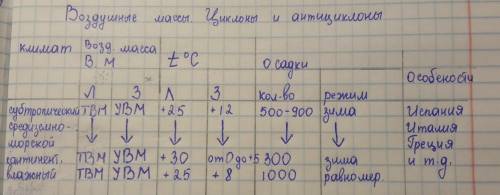 Воздушные массы. Циклоны и антициклоны
климат Возд. масса В. М t°C Осадки Особености
Л З Л З кол-во режим
субтропический ТВМ УВМ +25 +12 500-900 зима Испания
средиземно- Италия
морской Греция
континент, ТВМ УВМ +30 от 0 до +5 300 зима и т.д.
влажный ТВМ УВМ +25 +8 1000 равномер.